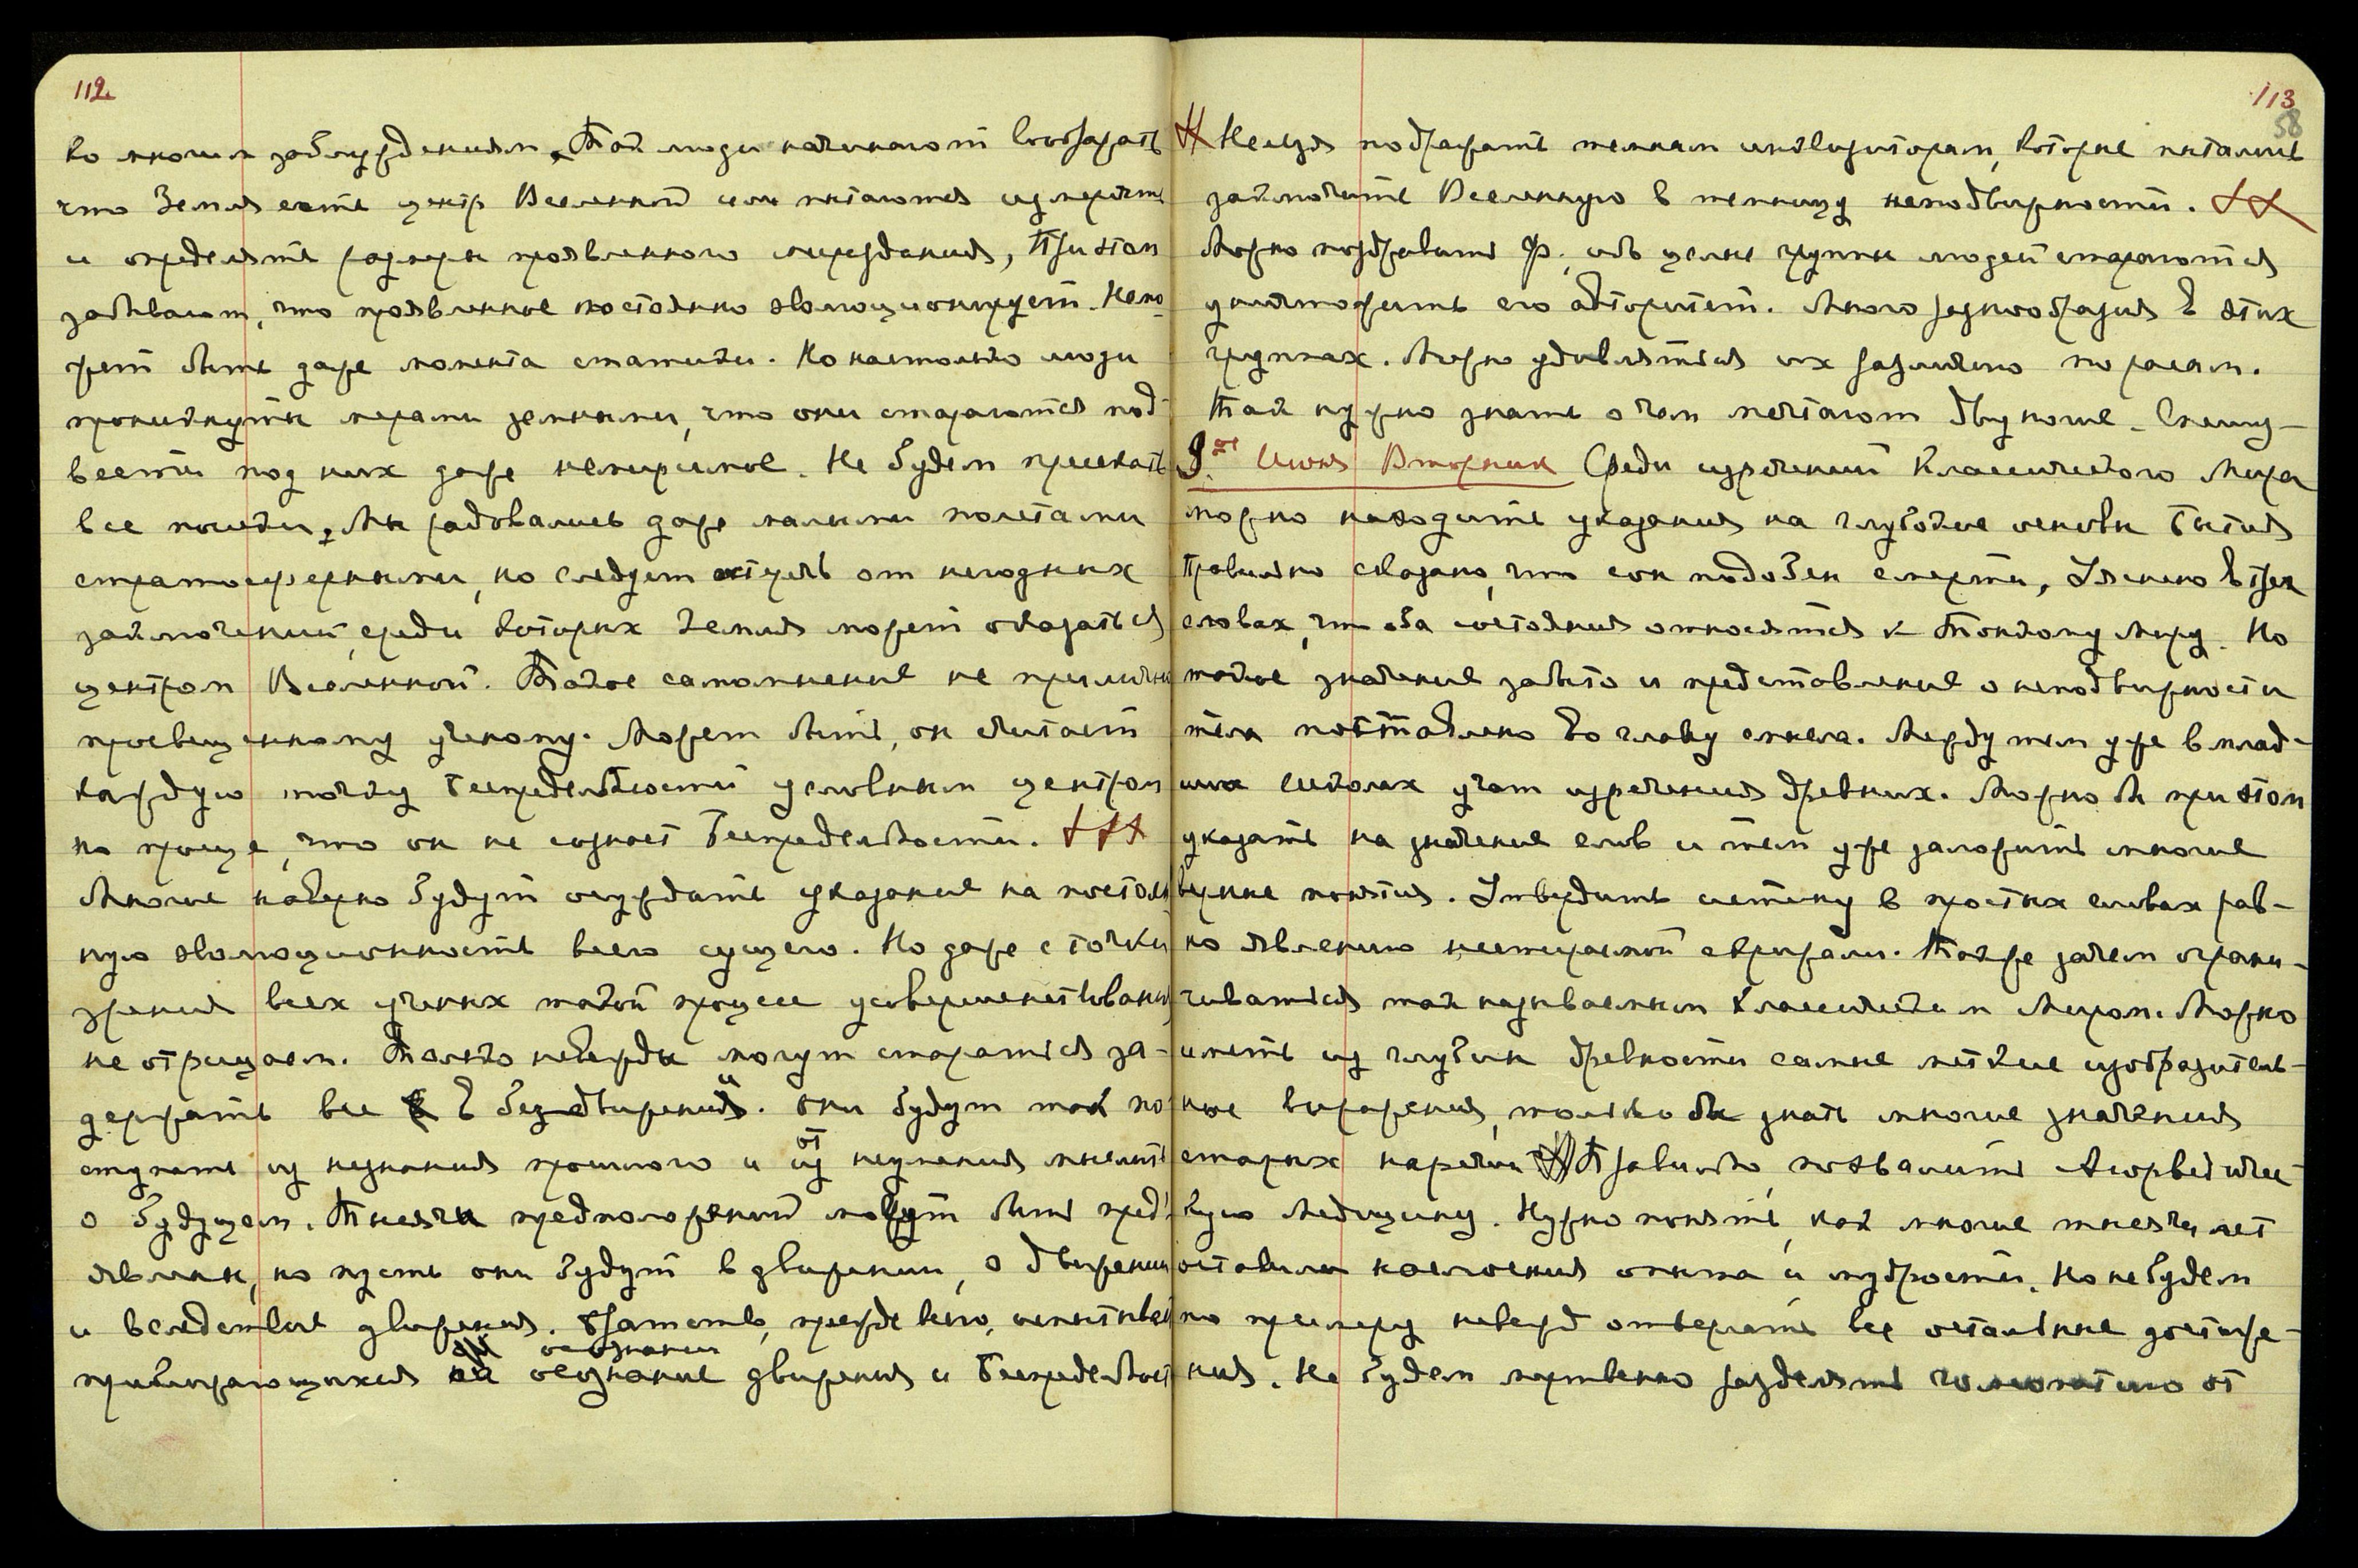 112.
ко многим заблуждениям. Так люди начинают воображать
что Земля есть центр Вселенной или пытаются измерять
и определять размеры проявленного мироздания, При этом
забывают, что проявленное постоянно эволюционирует. Не мо-
жет быть даже момента статики. Но настолько люди
проникнуты мерами земными, что они стараются под-
вести под них даже немеримое. Не будем пресекать
все поиски, Мы радовались даже малыми полетами
стратосферными, но следует от негодных
заключений, среди которых Земля может оказаться
центром Вселенной. Такое самомнение не прилично
просвещенному ученому. Может быть, он считает
каждую точку Беспредельности условным центром
но проще, что он не сознает Беспредельности.
Многие наверно будут осуждать указание на постоян-
ную эволюционность всего сущего. Но даже с точки
зрения всех ученых такой процесс усовершенствования
не отрицаем. Только невежды могут стараться за-
держать все в без движении. Они будут так по-
ступать из незнания прошлого и от неумения мыслить
о будущем. Тысячи предположений могут быть пред-
явлены, но пусть они будут в движении, о движении
и вследствие движения. Братство, прежде всего,
придерживающихся осознания движения и Беспредельност
113
58
Нельзя подражать темным инквизиторам, которые пытались
заключить Вселенную в темницу неподвижности.
Можно поздравить Ф., ибо целые группы людей стараются
уничтожить его авторитет. Много разнообразия в этих
группах. Можно удивляться их различию по расам.
Так нужно знать о чем мечтают двуногие. Спешу-
9ое Июня Вторник Среди изречений Классического Мира
можно находить указания на глубокие основы Бытия
Правильно сказано, что сон подобен смерти, Ясно в трех
словах, что оба состояния относятся к Тонкому Миру. Но
такое значение забыто и представление о неподвижности
тела поставлено во главу смысла. Между тем уже в млад-
ших школах учат изречения древних. Можно бы при этом
указать на значение слов и тем уже заложить многие
верные понятия. Утвердить истину в простых словах рав-
но явлению нестираемой скрижали. Также зачем ограни-
чиваться так называемым Классическим Миром. Можно
иметь из глубин древности самые меткие изобразитель-
ные выражения, только бы знать многие значения
старых наречий Правильно похвалить Аюрведичес-
кую Медицину. Нужно понять, как многие тысячи лет
оставили наслоения опыта и мудрости. Но не будем
по примеру невежд отвергать все остальные достиже-
ния. Не будем мертвенно разделять гомеопатию от